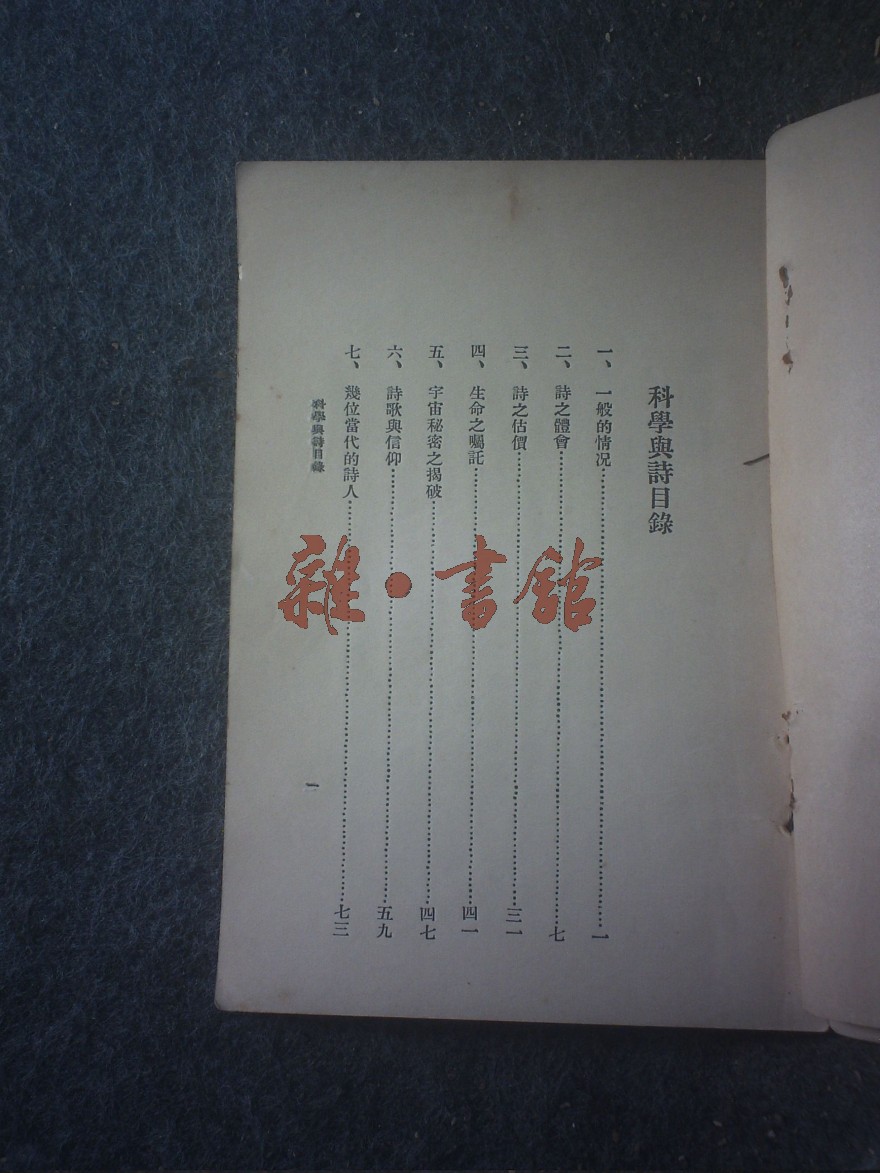 科學與詩目錄
一、一般的情況……一
二、詩之體會……七
三、詩之估價……三一
四、生命之囑託……四一
五、宇宙秘密之揭破……四七
六、詩歌與信仰……五九
七、幾位當代的詩人……七三
科學與詩目錄
一
雜·書館